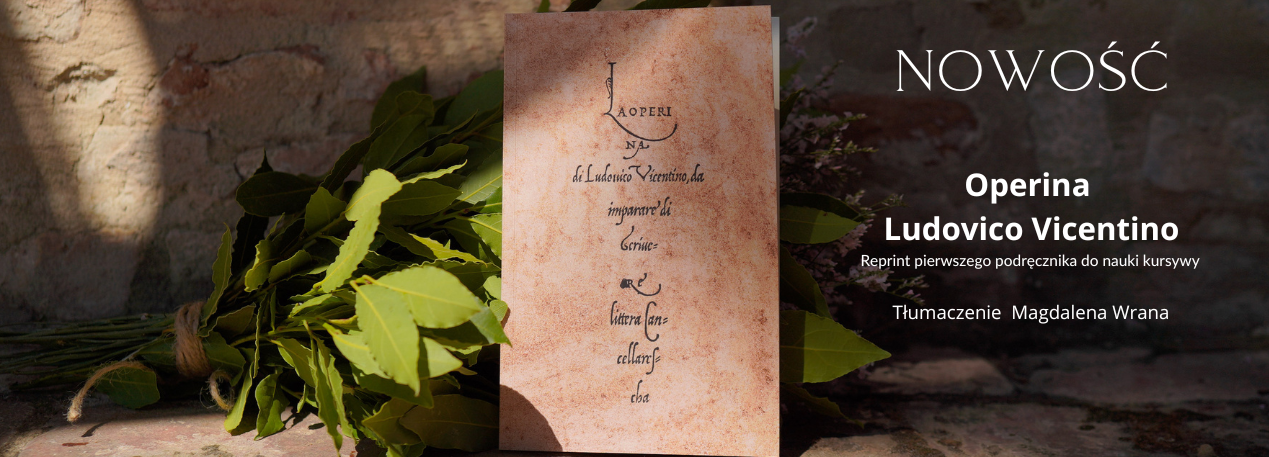 LAOPERI
NA
di Ludouico Vicentino, da
imparare di
Scriue=
RE
littera Can=
cellares=
cha
NOWOŚĆ
Operina
Ludovico Vicentino
Reprint pierwszego podręcznika do nauki kursywy
Tłumaczenie Magdalena Wrana